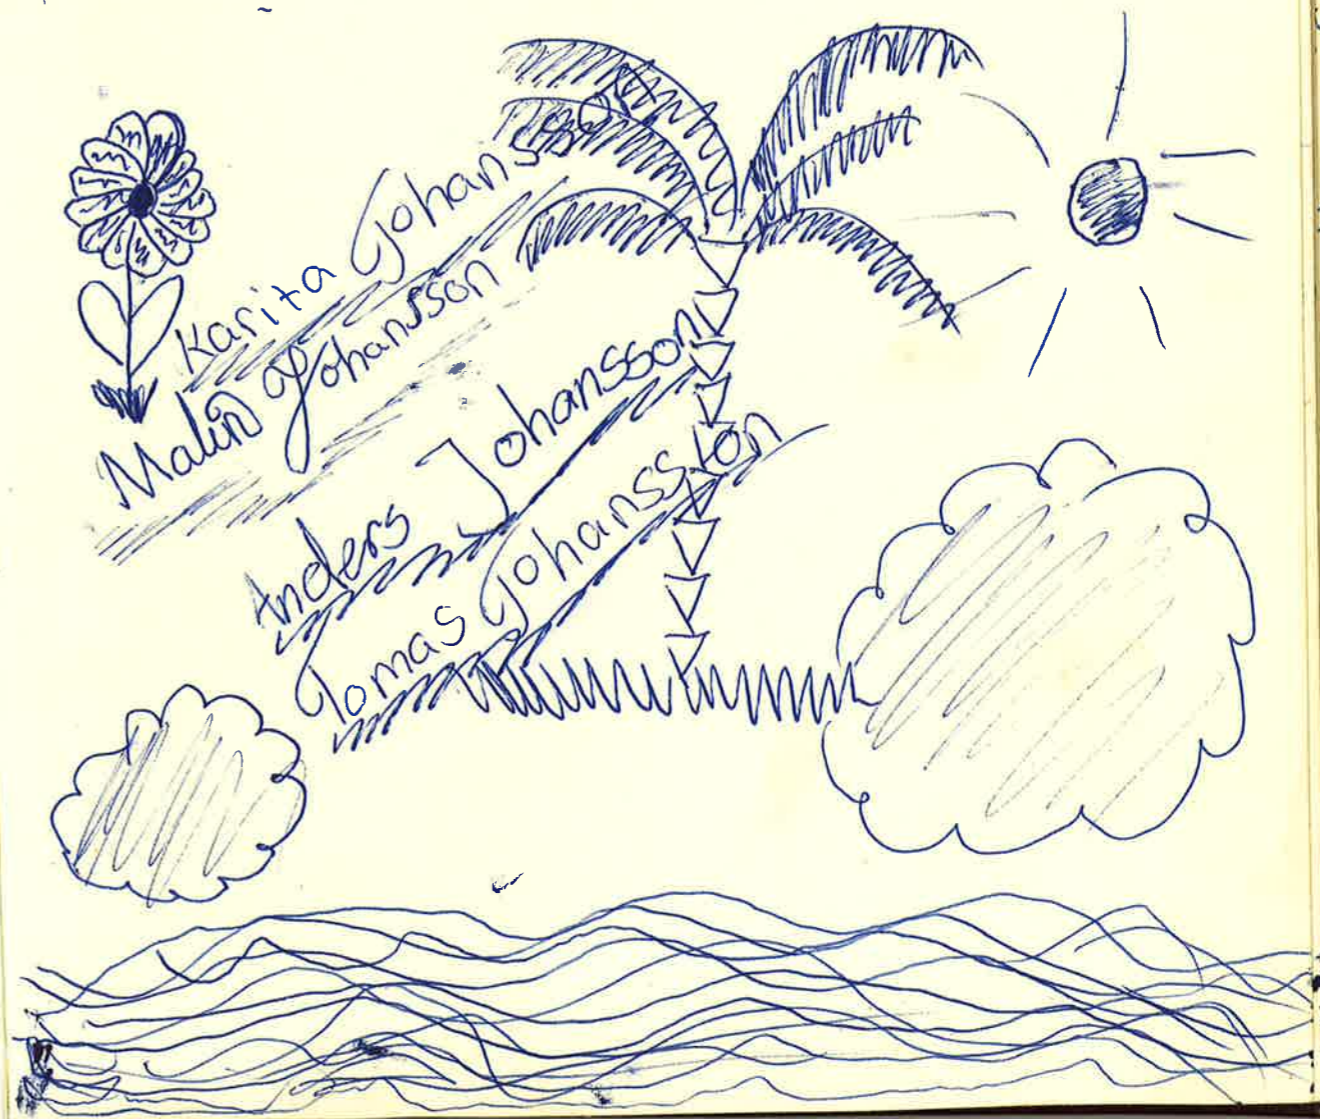 Karita Johansson
Malin Johansson
Anders Johansson
Tomas Johansson